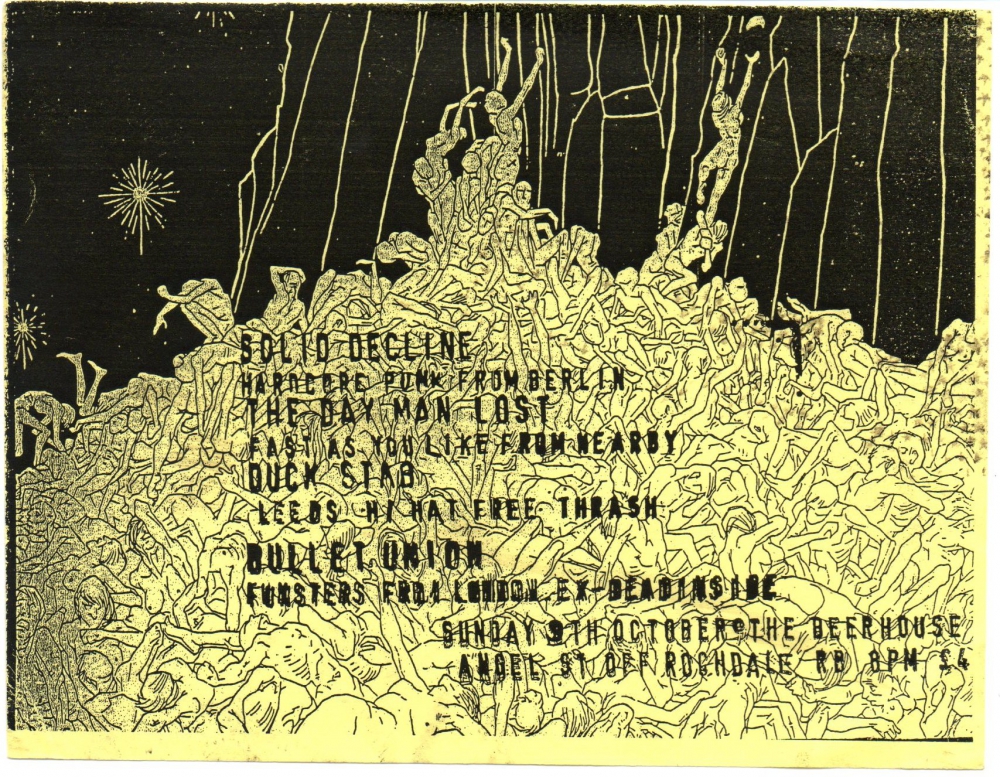 SOLID DECLINE
HARDCORE PUNK FROM BERLIN
THE DAY MAN LOST
FAST AS YOU LIKE FROM NEARBY
DUCK STAB
LEEDS HI HAT FREE THRASH
BULLET UNION
FUNSTERS FROM LONDON EX-DEADINSIDE
SUNDAY 9TH OCTOBER@THE BEERHOUSE
ANGEL ST OFF ROCHDALE RD 8PM £4